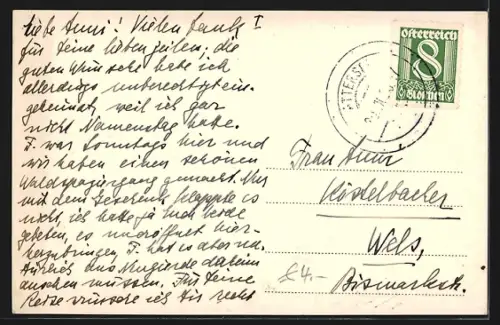 Liebe Anni! Vielen Dank I
für Deine lieben Zeilen; die
guten Wünsche habe ich
allerdings unberechtigt ein-
geheimst, weil ich gar
nicht Namenstag hatte.
F. war Sonntags hier und
wir haben einen schönen
Waldspaziergang gemacht. Nur
mit dem Lesezirk klappte es
nicht, ich hatte ja Euch beide
gebeten, es uneröffnet hier-
herzubringen, F. hat es aber na-
türlich aus Neugierde daheim
ansehen müssen. Für Deine
Reise wünsche ich Dir recht
Österreich
8
Groschen
Frau Anni
Köstelbacher
Wels,
Bismarckstr.
£4.-